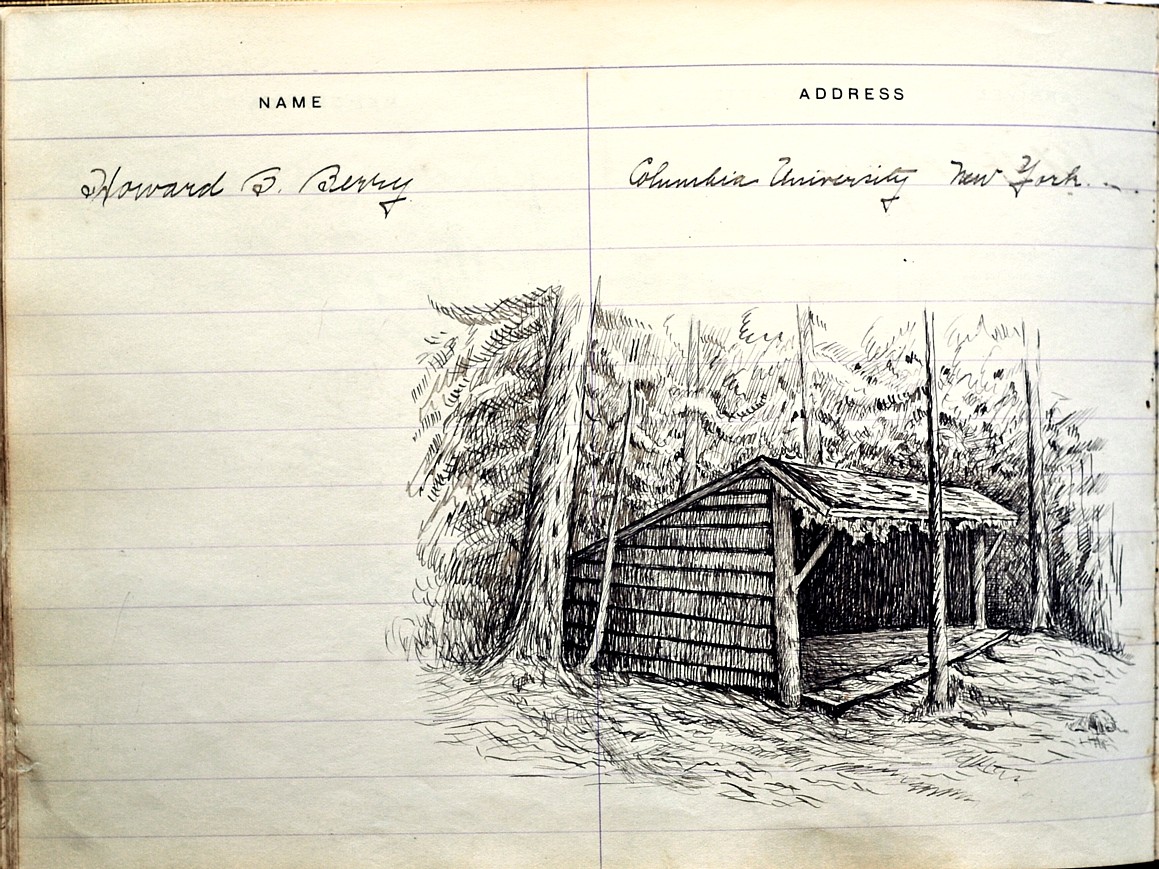 NAME ADDRESS
Howard B. Berry Columbia University New York....